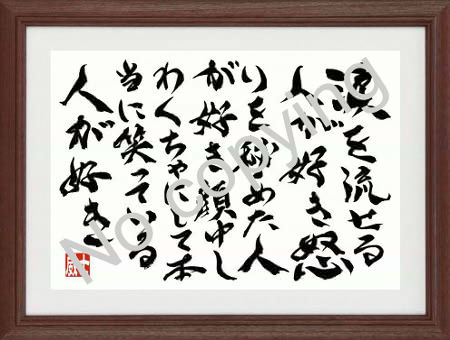 涙を流せる
人が好き怒
りを秘めた人
が好き顔中し
わくちゃにして本
当に笑っている
人が好き
No copying